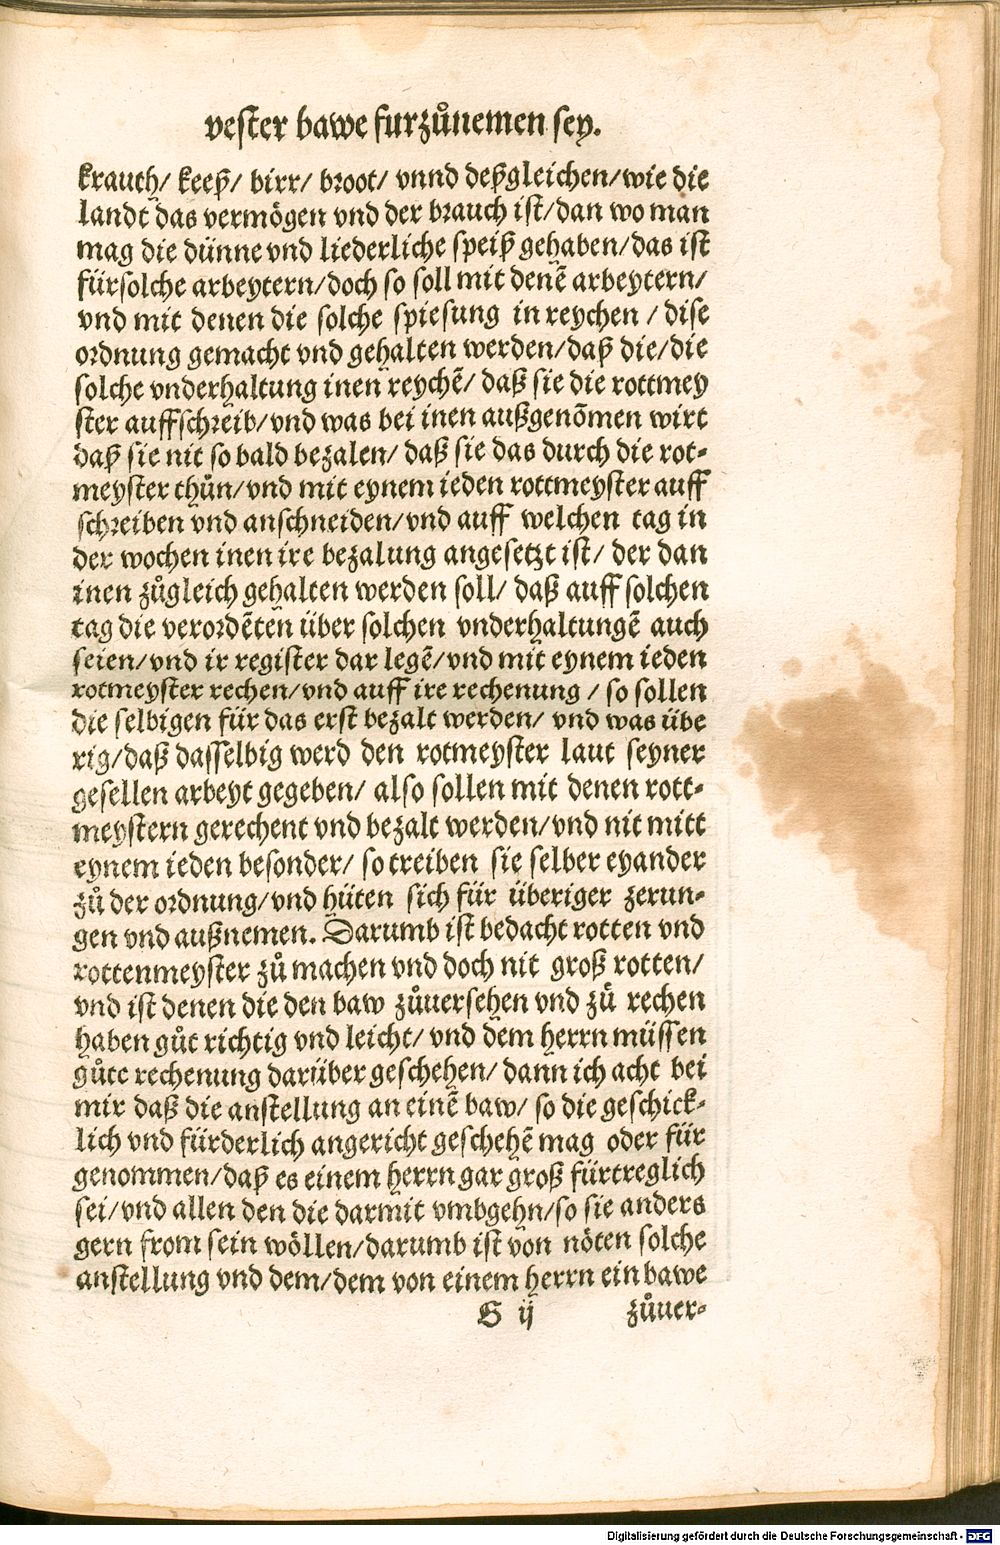 vester bawe furzůnemen sey.
krauth/ keeß/ birr/ broot/ vnnd deßgleichen/wie die
landt das vermögen vnd der brauch ist/dan wo man
mag die dünne vnd liederliche speiß gehaben/das ist
fürsolche arbeytern/doch so soll mit denē arbeytern/
vnd mit denen die solche spiesung in reychen / dise
ordnung gemacht vnd gehalten werden/daß die/die
solche vnderhaltung inen reychē/ daß sie die rottmey
ster auffschreib/vnd was bei inen außgenōmen wirt
daß sie nit so bald bezalen/ daß sie das durch die rot-
meyster thůn/vnd mit eynem ieden rottmeyster auff
schreiben vnd anschneiden/vnd auff welchen tag in
der wochen inen ire bezalung angesetzt ist/ der dan
inen zůgleich gehalten werden soll/ daß auff solchen
tag die verordēten über solchen vnderhaltungē auch
seien/vnd ir register dar legē/vnd mit eynem ieden
rotmeyster rechen/vnd auff ire rechenung / so sollen
die selbigen für das erst bezalt werden/ vnd was übe
rig/daß dasselbig werd den rotmeyster laut seyner
gesellen arbeyt gegeben/ also sollen mit denen rott-
meystern gerechent vnd bezalt werden/vnd nit mitt
eynem ieden besonder/ so treiben sie selber eyander
zů der ordnung/vnd hüten sich für überiger zerun-
gen vnd außnemen. Darumb ist bedacht rotten vnd
rottenmeyster zů machen vnd doch nit groß rotten/
vnd ist denen die den baw zůuersehen vnd zů rechen
haben gůt richtig vnd leicht/ vnd dem herrn müssen
gůte rechenung darüber geschehen/ dann ich acht bei
mir daß die anstellung an einē baw/ so die geschick-
lich vnd fürderlich angericht geschehē mag oder für
genommen/daß es einem herrn gar groß fürtreglich
sei/vnd allen den die darmit vmbgehn/so sie anders
gern from sein wöllen/darumb ist von nöten solche
anstellung vnd dem/dem von einem herrn ein bawe
G ij zůuer-
Digitalisierung gefördert durch die Deutsche Forschungsgemeinschaft - DFG